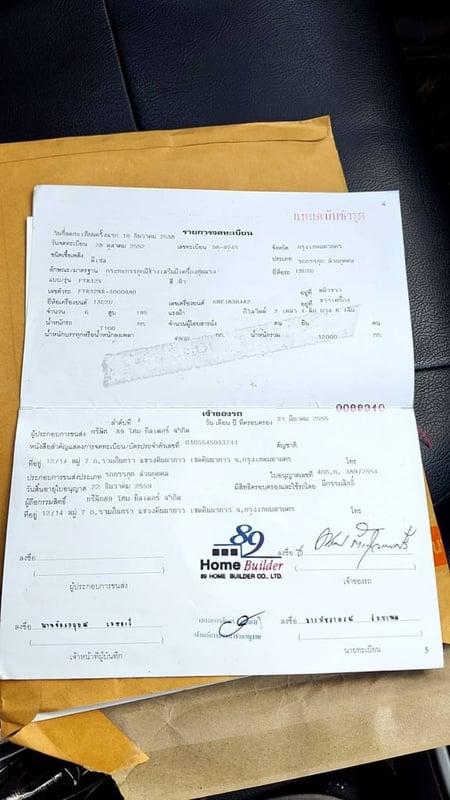 4
แทนฉบับชำรุด
รายการจดทะเบียน
วันที่จดทะเบียนครั้งแรก 18 ธันวาคม 2538
วันจดทะเบียน 28 ตุลาคม 2552 เลขทะเบียน 98-9745 จังหวัด กรุงเทพมหานคร
ชนิดเชื้อเพลิง ดีเซล ประเภท รถบรรทุก ส่วนบุคคล
ลักษณะ/มาตรฐาน กระบะบรรทุกมีข้างเสริมมีเครื่องทุ่นแรง ยี่ห้อรถ ISUZU
แบบ/รุ่น FTR32N สี ฟ้า
เลขตัวรถ อยู่ที่
ยี่ห้อเครื่องยนต์ ISUZU เลขเครื่องยนต์ อยู่ที่ ขวาเครื่อง
จำนวน 6 สูบ 195 แรงม้า 2 เพลา 4 ล้อ ยาง 6 เส้น
น้ำหนักรถ 7100 กก. จำนวนผู้โดยสารนั่ง คน ยืน คน
น้ำหนักบรรทุกหรือน้ำหนักลงเพลา 4900 กก. น้ำหนักรวม 12000 กก.
เจ้าของรถ
ลำดับที่ 4 วัน เดือน ปี ที่ครอบครอง 21 มีนาคม 2555
ผู้ประกอบการขนส่ง บริษัท 89 โฮม บิลเดอร์ จำกัด
หนังสือสำคัญแสดงการจดทะเบียน/บัตรประจำตัวเลขที่ 0105545033741 สัญชาติ
ที่อยู่ 12/14 หมู่ 7 ถ.รามอินทรา แขวงคันนายาว เขตคันนายาว จ.กรุงเทพมหานคร โทร
ประกอบการขนส่งประเภท รถบรรทุก ส่วนบุคคล ใบอนุญาตเลขที่ 389/2554
วันสิ้นอายุใบอนุญาต 22 ธันวาคม 2559 มีสิทธิครอบครองและใช้รถโดย มีกรรมสิทธิ์
ผู้ถือกรรมสิทธิ์ บริษัท 89 โฮม บิลเดอร์ จำกัด
ที่อยู่ 12/14 หมู่ 7 ถ.รามอินทรา แขวงคันนายาว เขตคันนายาว จ.กรุงเทพมหานคร โทร
89
Home Builder
89 HOME BUILDER CO., LTD.
ลงชื่อ ลงชื่อ
ผู้ประกอบการขนส่ง เจ้าของรถ
ลงชื่อ ลงชื่อ
เจ้าหน้าที่ผู้บันทึก นายทะเบียน
5